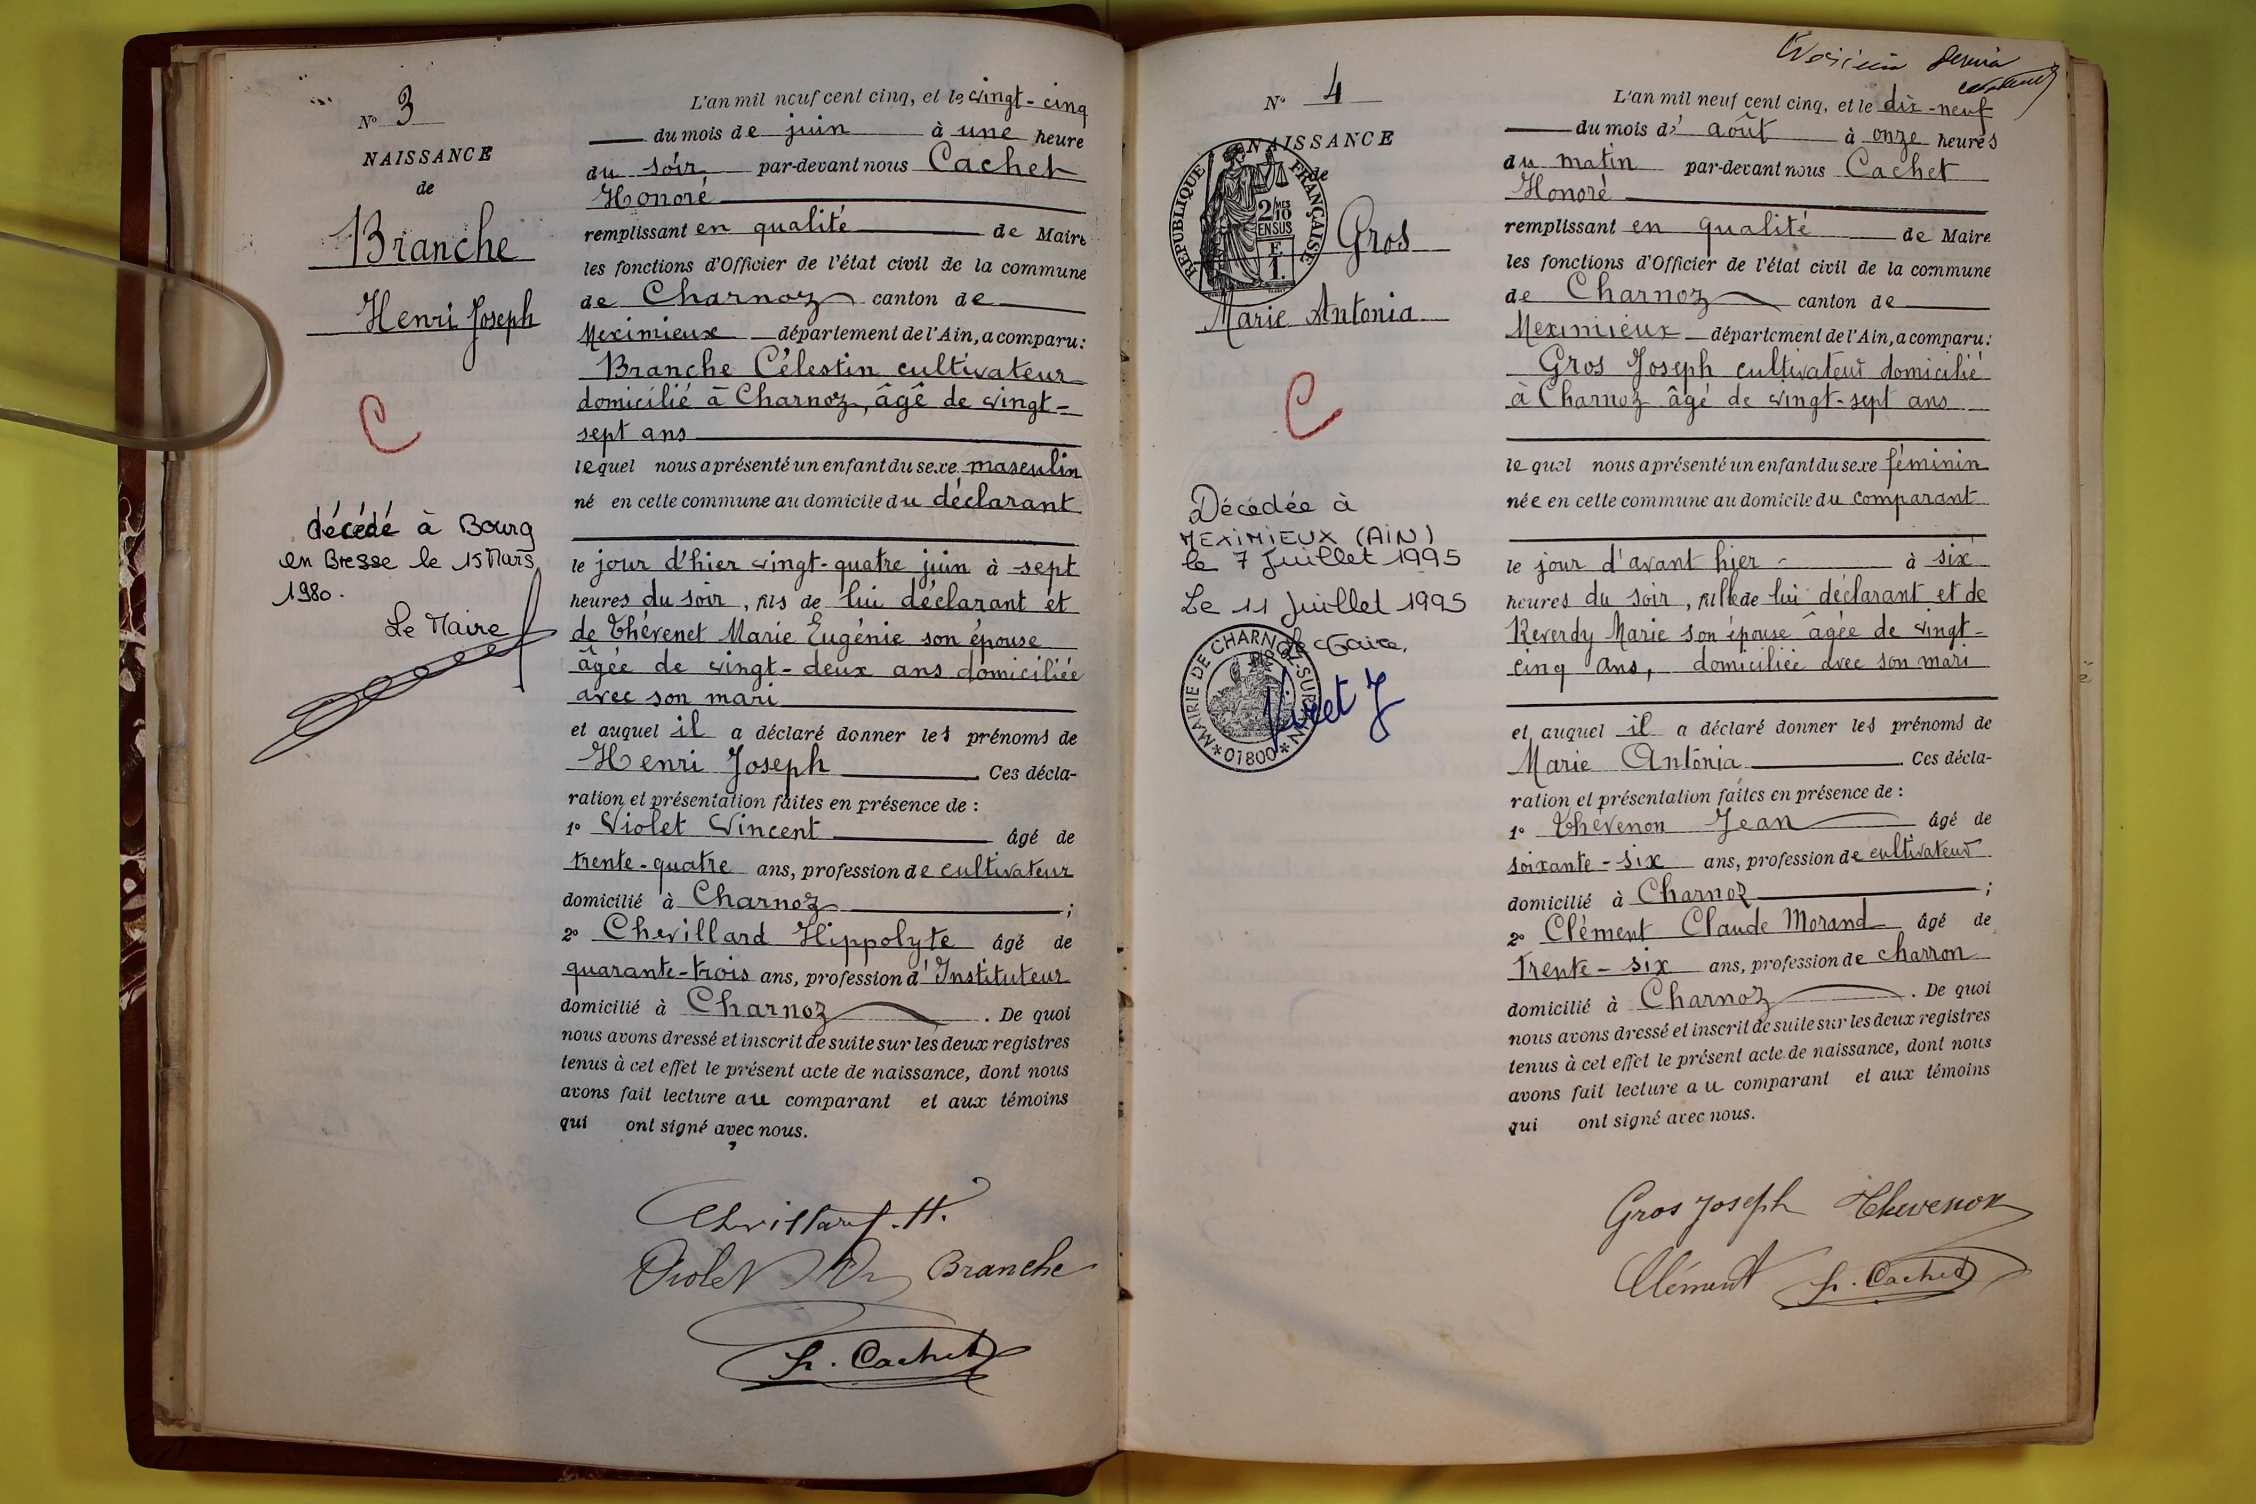 N° 3
NAISSANCE
de
Branche
Henri Joseph
C
décédé à Bourg
en Bresse le 15 Mars
1980.
Le Maire
L'an mil neuf cent cinq, et le vingt-cinq
du mois de juin à une heure
du soir par-devant nous Cachet
Honoré
remplissant en qualité de Maire
les fonctions d'Officier de l'état civil de la commune
de Charnoz canton de
Meximieux département de l'Ain, a comparu:
Branche Célestin cultivateur
domicilié à Charnoz, âgé de vingt-
sept ans
lequel nous a présenté un enfant du sexe masculin
né en cette commune au domicile du déclarant
le jour d'hier vingt-quatre juin à sept
heures du soir, fils de lui déclarant et
de Thévenet Marie Eugénie son épouse
âgée de vingt-deux ans domiciliée
avec son mari
et auquel il a déclaré donner les prénoms de
Henri Joseph. Ces décla-
ration et présentation faites en présence de :
1° Violet Vincent âgé de
trente-quatre ans, profession de cultivateur
domicilié à Charnoz ;
2° Chevillard Hippolyte âgé de
quarante-trois ans, profession d'Instituteur
domicilié à Charnoz. De quoi
nous avons dressé et inscrit de suite sur les deux registres
tenus à cet effet le présent acte de naissance, dont nous
avons fait lecture au comparant et aux témoins
qui ont signé avec nous.
Chevillard. H.
Violet Branche
h. Cachet
N° 4
NAISSANCE
de
Gros
Marie Antonia
RÉPUBLIQUE FRANÇAISE
2/10 MES
EN SUS
F.
1.
C
Décédée à
MEXIMIEUX (AIN)
le 7 Juillet 1995
Le 11 Juillet 1995
Le Maire,
Viret J
MAIRIE DE CHARNOZ-SUR-AIN * 01800 *
L'an mil neuf cent cinq, et le dix-neuf
du mois d' août à onze heures
du matin par-devant nous Cachet
Honoré
remplissant en qualité de Maire
les fonctions d'Officier de l'état civil de la commune
de Charnoz canton de
Meximieux département de l'Ain, a comparu:
Gros Joseph cultivateur domicilié
à Charnoz âgé de vingt-sept ans
lequel nous a présenté un enfant du sexe féminin
née en cette commune au domicile du comparant
le jour d'avant hier à six
heures du soir, fille de lui déclarant et de
Reverdy Marie son épouse âgée de vingt-
cinq ans, domiciliée avec son mari
et auquel il a déclaré donner les prénoms de
Marie Antonia. Ces décla-
ration et présentation faites en présence de :
1° Thévenon Jean âgé de
soixante-six ans, profession de cultivateur
domicilié à Charnoz ;
2° Clément Claude Morand âgé de
trente-six ans, profession de charron
domicilié à Charnoz. De quoi
nous avons dressé et inscrit de suite sur les deux registres
tenus à cet effet le présent acte de naissance, dont nous
avons fait lecture au comparant et aux témoins
qui ont signé avec nous.
Gros Joseph Thevenon
Clément h. Cachet